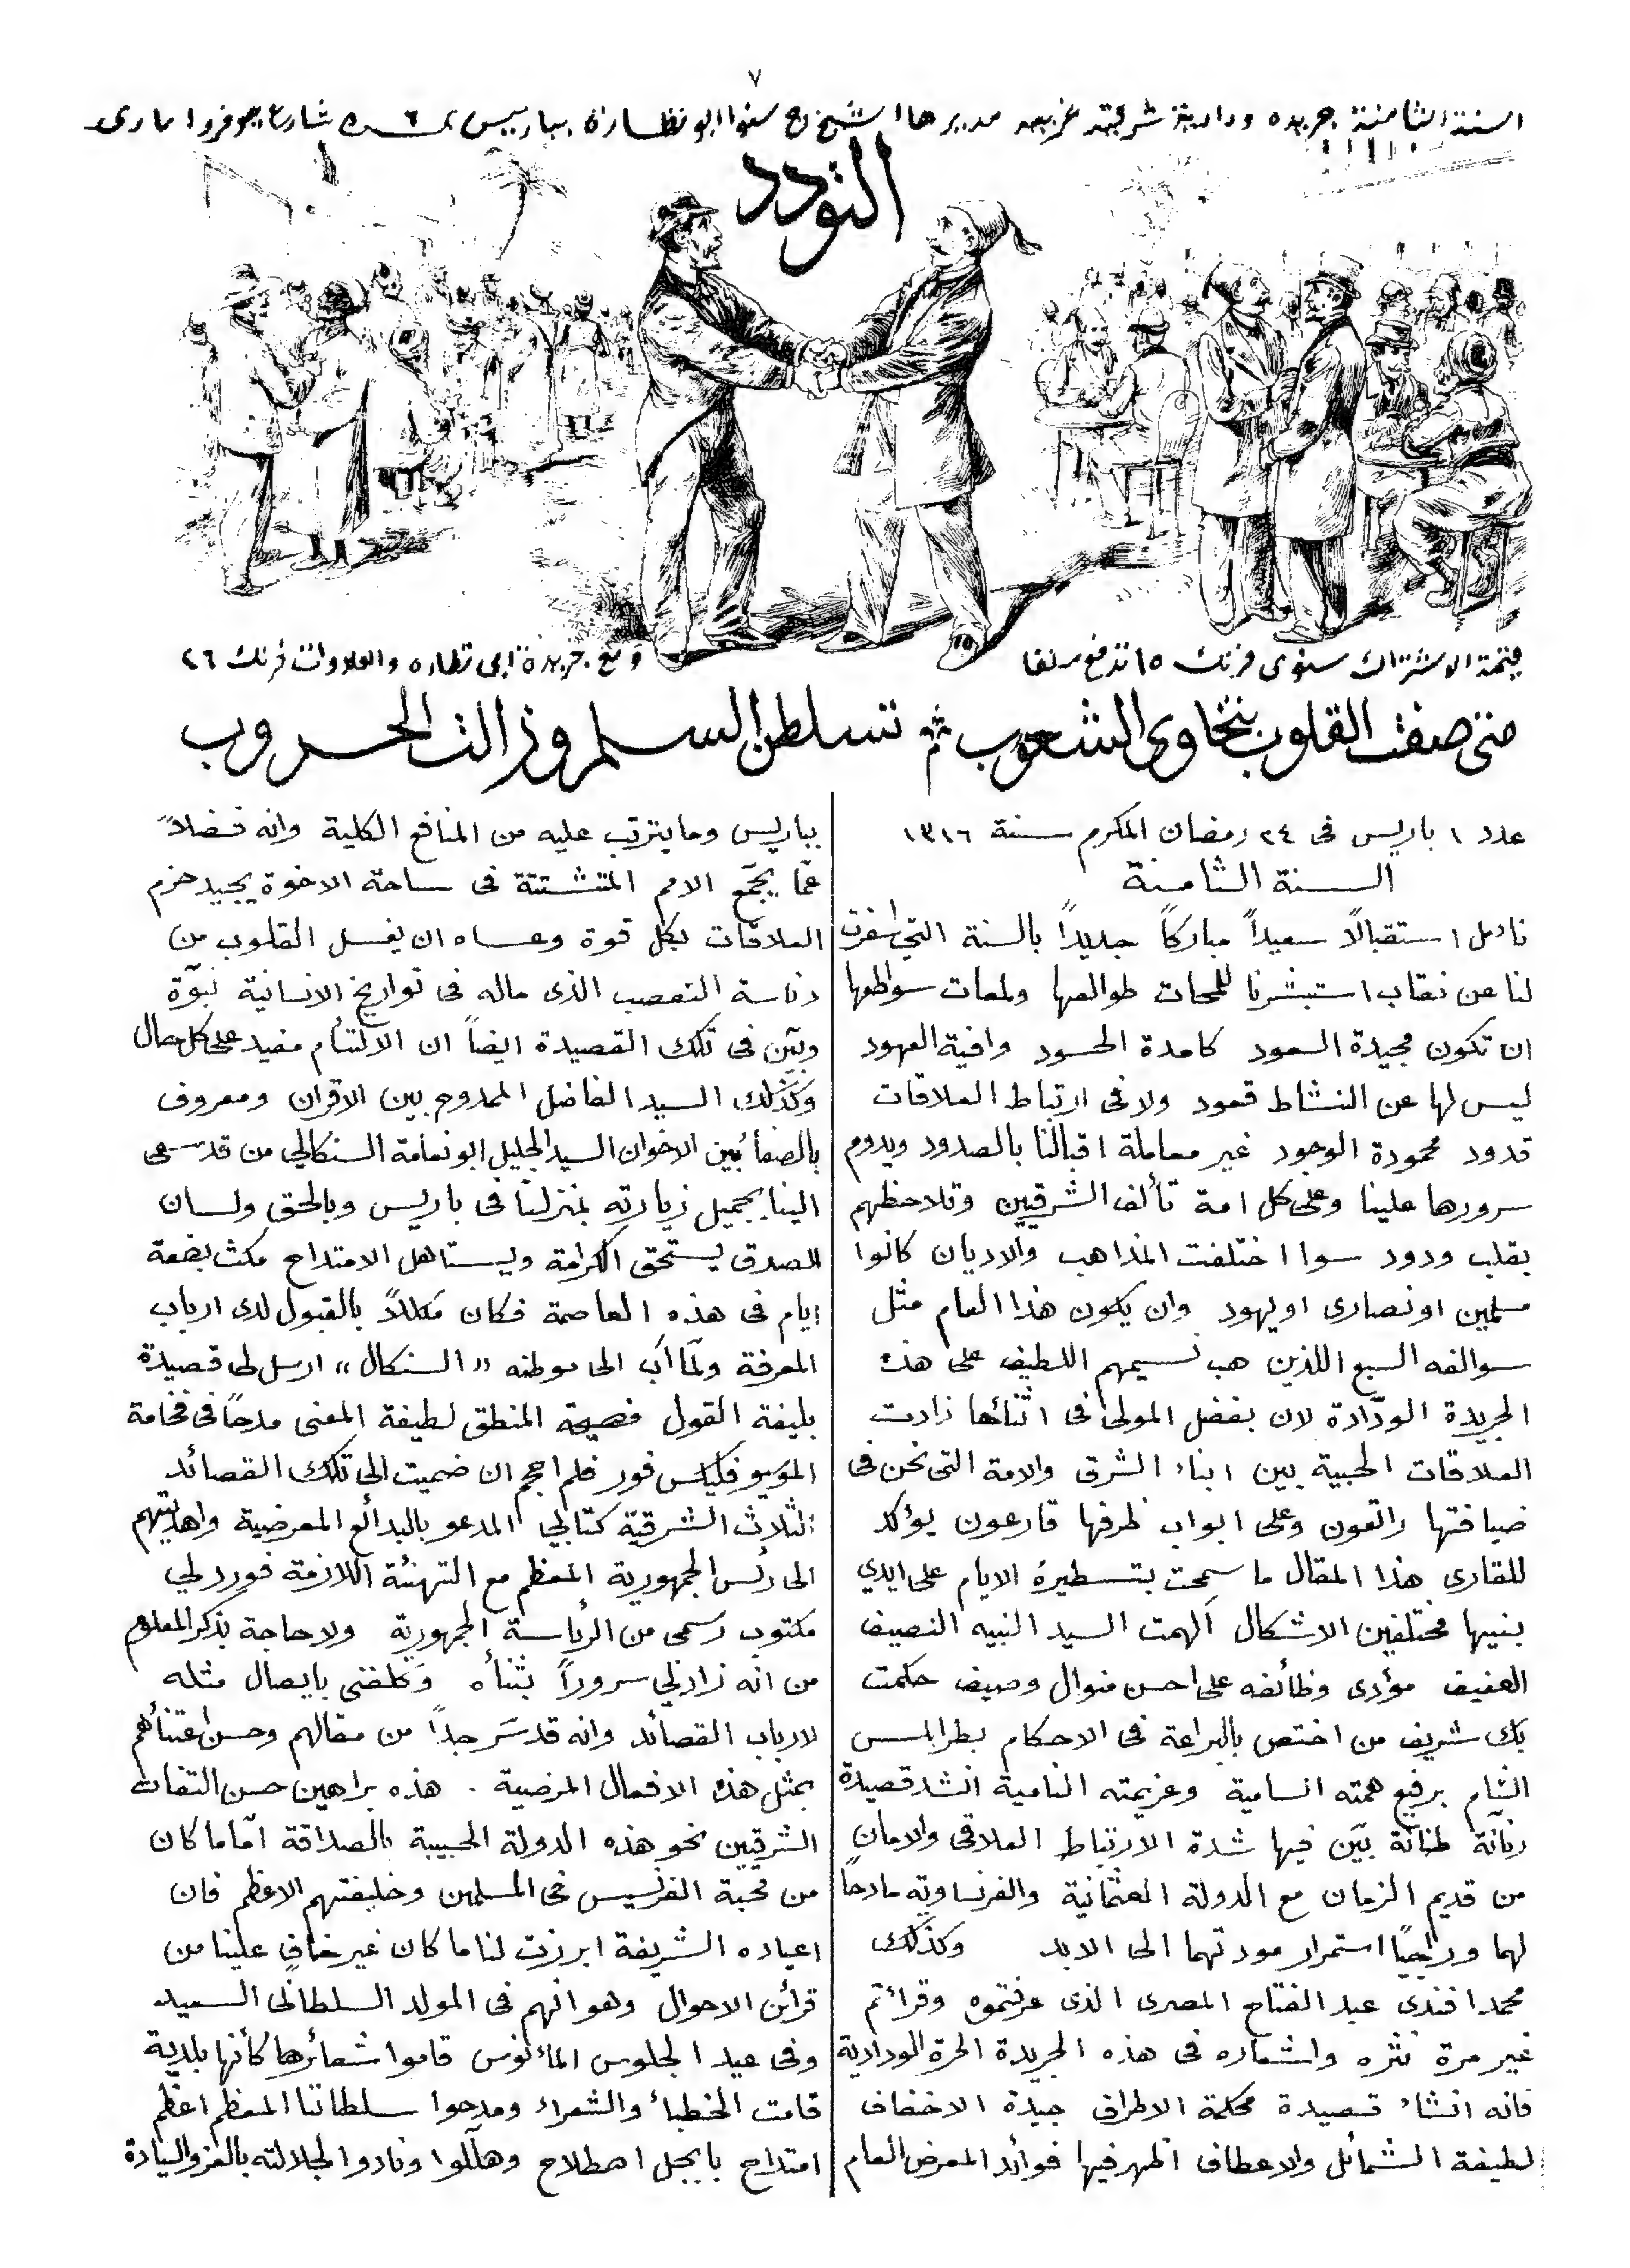 ٧
السنة الثامنة جريده ودادية شرقية غربيه مديرها الشيخ ج سنوا ابو نظارة بباريس ٦ شارع جوفروا مارى
التودد
قيمة الاشتراك سنوى فرنك ١٥ تدفع سلفا
ومع جريدة ابى نظاره والعلاوات فرنك ٢٦
متى صفت القلوب بتخاوى الشعوب تسلطن السلم وزالت الحروب
عدد ١ باريس فى ٢٤ رمضان المكرم سنة ١٣١٦
السنة الثامنة
نأمل استقبالاً سعيداً مباركاً جديداً بالسنة التى اسفرت
لنا عن نقاب استبشرنا للمحات طوالعها ولمعات سواطعها
ان تكون مجيدة السعود كامدة الحسود وافية العهود
ليس لها عن النشاط قعود ولا فى ارتباط العلاقات
قدود محمودة الوجود غير معاملة اقبالنا بالصدود ويدوم
سرورها علينا وعلى كل امة تألف الشرقيين وتلاحظهم
بقلب ودود سوا اختلفت المذاهب والاديان كانوا
مسلمين او نصارى او يهود وان يكون هذا العام مثل
سوالفه السبع اللذين هب نسيمهم اللطيف على هذه
الجريدة الودّادة لان بفضل المولى فى اثنائها زادت
العلاقات الحبية بين ابناء الشرق والامة التى نحن فى
ضيافتها راتعون وعلى ابواب ظرفها قارعون يؤكد
للقارى هذا المقال ما سمحت بتسطيره الايام على ايدي
بنيها مختلفين الاشكال ألهمت السيد النبيه النصيف
العفيف مؤدى وظائفه على احسن منوال وصيف حكمت
بك شريف من اختص بالبراعة فى الاحكام بطرابلس
الشام برفيع همته السامية وعزيمته النامية انشد قصيدة
رنّانة طنانة بيّن فيها شدة الارتباط العلاقى والامان
من قديم الزمان مع الدولة العثمانية والفرنساويه مادحاً
لهما وراجياً استمرار مودتهما الى الابد وكذلك
محمد افندى عبد الفتاح المصرى الذى عرفتموه وقرائتم
غير مرة نثره واشعاره فى هذه الجريدة الحرة الودادية
فانه انشاء قصيدة محكمة الاطراف جيدة الاخفاف
لطيفة الشمائل والاعطاف اظهر فيها فوائد المعرض العام
بباريس وما يترتب عليه من المنافع الكلية وانه فضلاً
عمّا يجمّع الامم المتشتتة فى ساحة الاخوة يجيد حزم
العلاقات بكل قوة وعساه ان يغسل القلوب من
دناسة التعصب الذى ماله فى تواريخ الانسانية نبوّة
وبيّن فى تلك القصيدة ايضاً ان الالتئام مفيد على كل حال
وكذلك السيد الفاضل الممدوح بين الاقران ومعروف
بالصفاء بين الاخوان السيد الجليل ابو نعامة السنكالى من قد سعى
الينا بجميل زيارته بمنزلنا فى باريس وبالحق ولسان
الصدق يستحق الكرامة ويستاهل الامتداح مكث بضعة
ايام فى هذه العاصمة فكان مكللاً بالقبول لدى ارباب
المعرفة ولمّا آب الى موطنه «السنكال» ارسل لى قصيدة
بليغة القول فصيحة المنطق لطيفة المعنى مدحاً فى فخامة
الموسيو فليكس فور فلم احجم ان ضميت الى تلك القصائد
الثلاث الشرقية كتابى المدعو بالبدائع المعرضية واهديتهم
الى رئس الجمهورية المعظم مع التهنئة اللازمة فورد لي
مكتوب رسمى من الرئاسة الجمهورية ولا حاجة بذكر المعلوم
من انه زادني سروراً بثناه وكلفنى بايصال مثله
لارباب القصائد وانه قد سَر جداً من مقالهم وحسن اعتنائهم
بمثل هذه الافعال المرضية . هذه براهين حسن التفات
الشرقيين نحو هذه الدولة الحبيبة بالصداقة امّا ما كان
من محبة الفرنسيس فى المسلمين وخليفتهم الاعظم فان
اعياده الشريفة ابرزت لنا ما كان غير خافٍ علينا من
قرائن الاحوال وهو انهم فى المولد السلطانى السعيد
وفى عيد الجلوس المأنوس قاموا شعائرها كأنها بلدية
قامت الخطباء والشعراء ومدحوا سلطاننا المعظم اعظم
امتداح بايجل اصطلاح وهلّلوا ونادوا لجلالته بالعز والسيادة